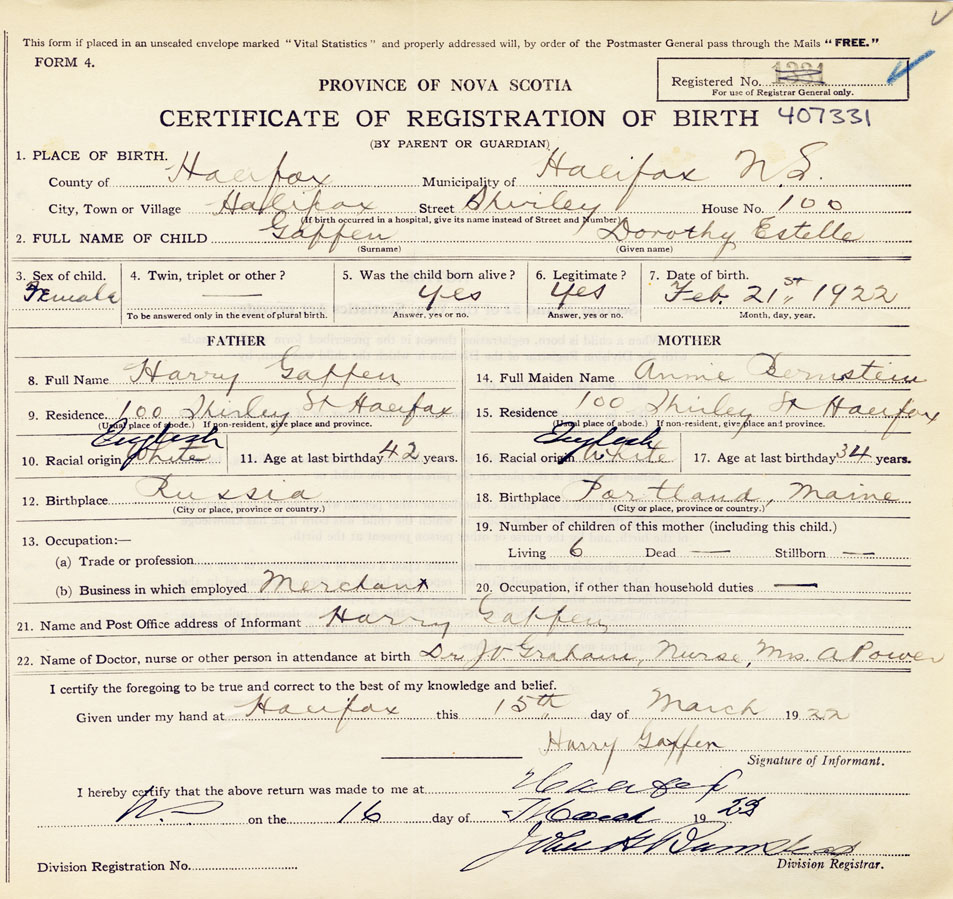 This form if placed in an unsealed envelope marked "Vital Statistics" and properly addressed will, by order of the Postmaster General pass through the Mails "FREE."
FORM 4.
PROVINCE OF NOVA SCOTIA
Registered No. 1331
For use of Registrar General only.
CERTIFICATE OF REGISTRATION OF BIRTH 407331
(BY PARENT OR GUARDIAN)
1. PLACE OF BIRTH.
County of Halifax Municipality of Halifax N.S.
City, Town or Village Halifax Street Shirley House No. 100
(If birth occurred in a hospital, give its name instead of Street and Number)
2. FULL NAME OF CHILD Gaffen Dorothy Estelle
(Surname) (Given name)
3. Sex of child. 4. Twin, triplet or other? 5. Was the child born alive? 6. Legitimate? 7. Date of birth.
Female — yes yes Feb. 21st 1922
To be answered only in the event of plural birth. Answer, yes or no. Answer, yes or no. Month, day, year.
FATHER MOTHER
8. Full Name Harry Gaffen 14. Full Maiden Name Annie Bernstein
9. Residence 100 Shirley St Halifax 15. Residence 100 Shirley St Halifax
(Usual place of abode.) If non-resident, give place and province. (Usual place of abode.) If non-resident, give place and province.
English English
10. Racial origin White 11. Age at last birthday 42 years. 16. Racial origin White 17. Age at last birthday 34 years.
12. Birthplace Russia 18. Birthplace Portland, Maine
(City or place, province or country.) (City or place, province or country.)
19. Number of children of this mother (including this child.)
13. Occupation:—
Living 6 Dead — Stillborn —
(a) Trade or profession
(b) Business in which employed Merchant 20. Occupation, if other than household duties —
21. Name and Post Office address of Informant Harry Gaffen
22. Name of Doctor, nurse or other person in attendance at birth Dr. J.V. Graham, Nurse, Mrs. A Power
I certify the foregoing to be true and correct to the best of my knowledge and belief.
Given under my hand at Halifax this 15th day of March 1922
Harry Gaffen
Signature of Informant.
I hereby certify that the above return was made to me at Halifax
on the 16 day of March 19
John
Division Registration No. Division Registrar.